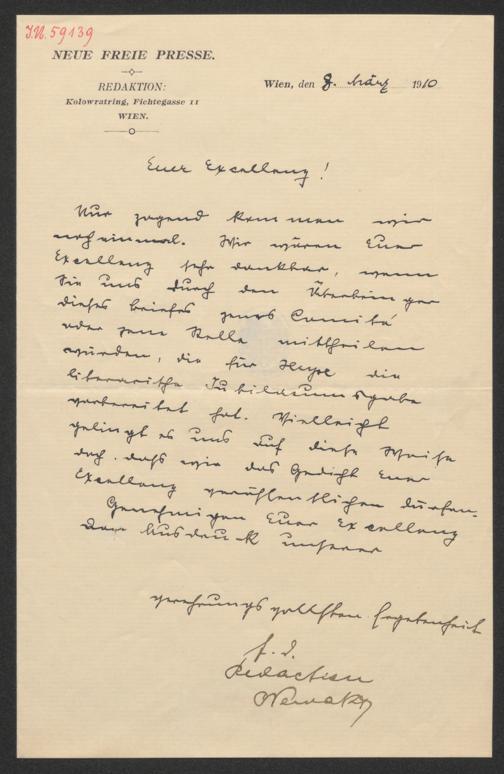 J.N. 59139
NEUE FREIE PRESSE.
REDAKTION:
Kolowratring, Fichtegasse 11
WIEN.
Wien, den 8. März 1910
Euer Excellenz!
Nur zagend kommen wir
noch einmal. Wir wären Euer
Excellenz sehr dankbar, wenn
Sie uns durch den Überbringer
dieses Briefes jenes Comité
oder jene Stelle mittheilen
würden, die für Heyse die
literarische Jubiläumsgabe
vorbereitet hat. Vielleicht
gelingt es uns auf diese Weise
doch, dass wir das Gedicht Euer
Excellenz veröffentlichen dürfen.
Genehmigen Euer Excellenz
den Ausdruck unserer
verehrungsvollsten Ergebenheit
f. d.
Redaction